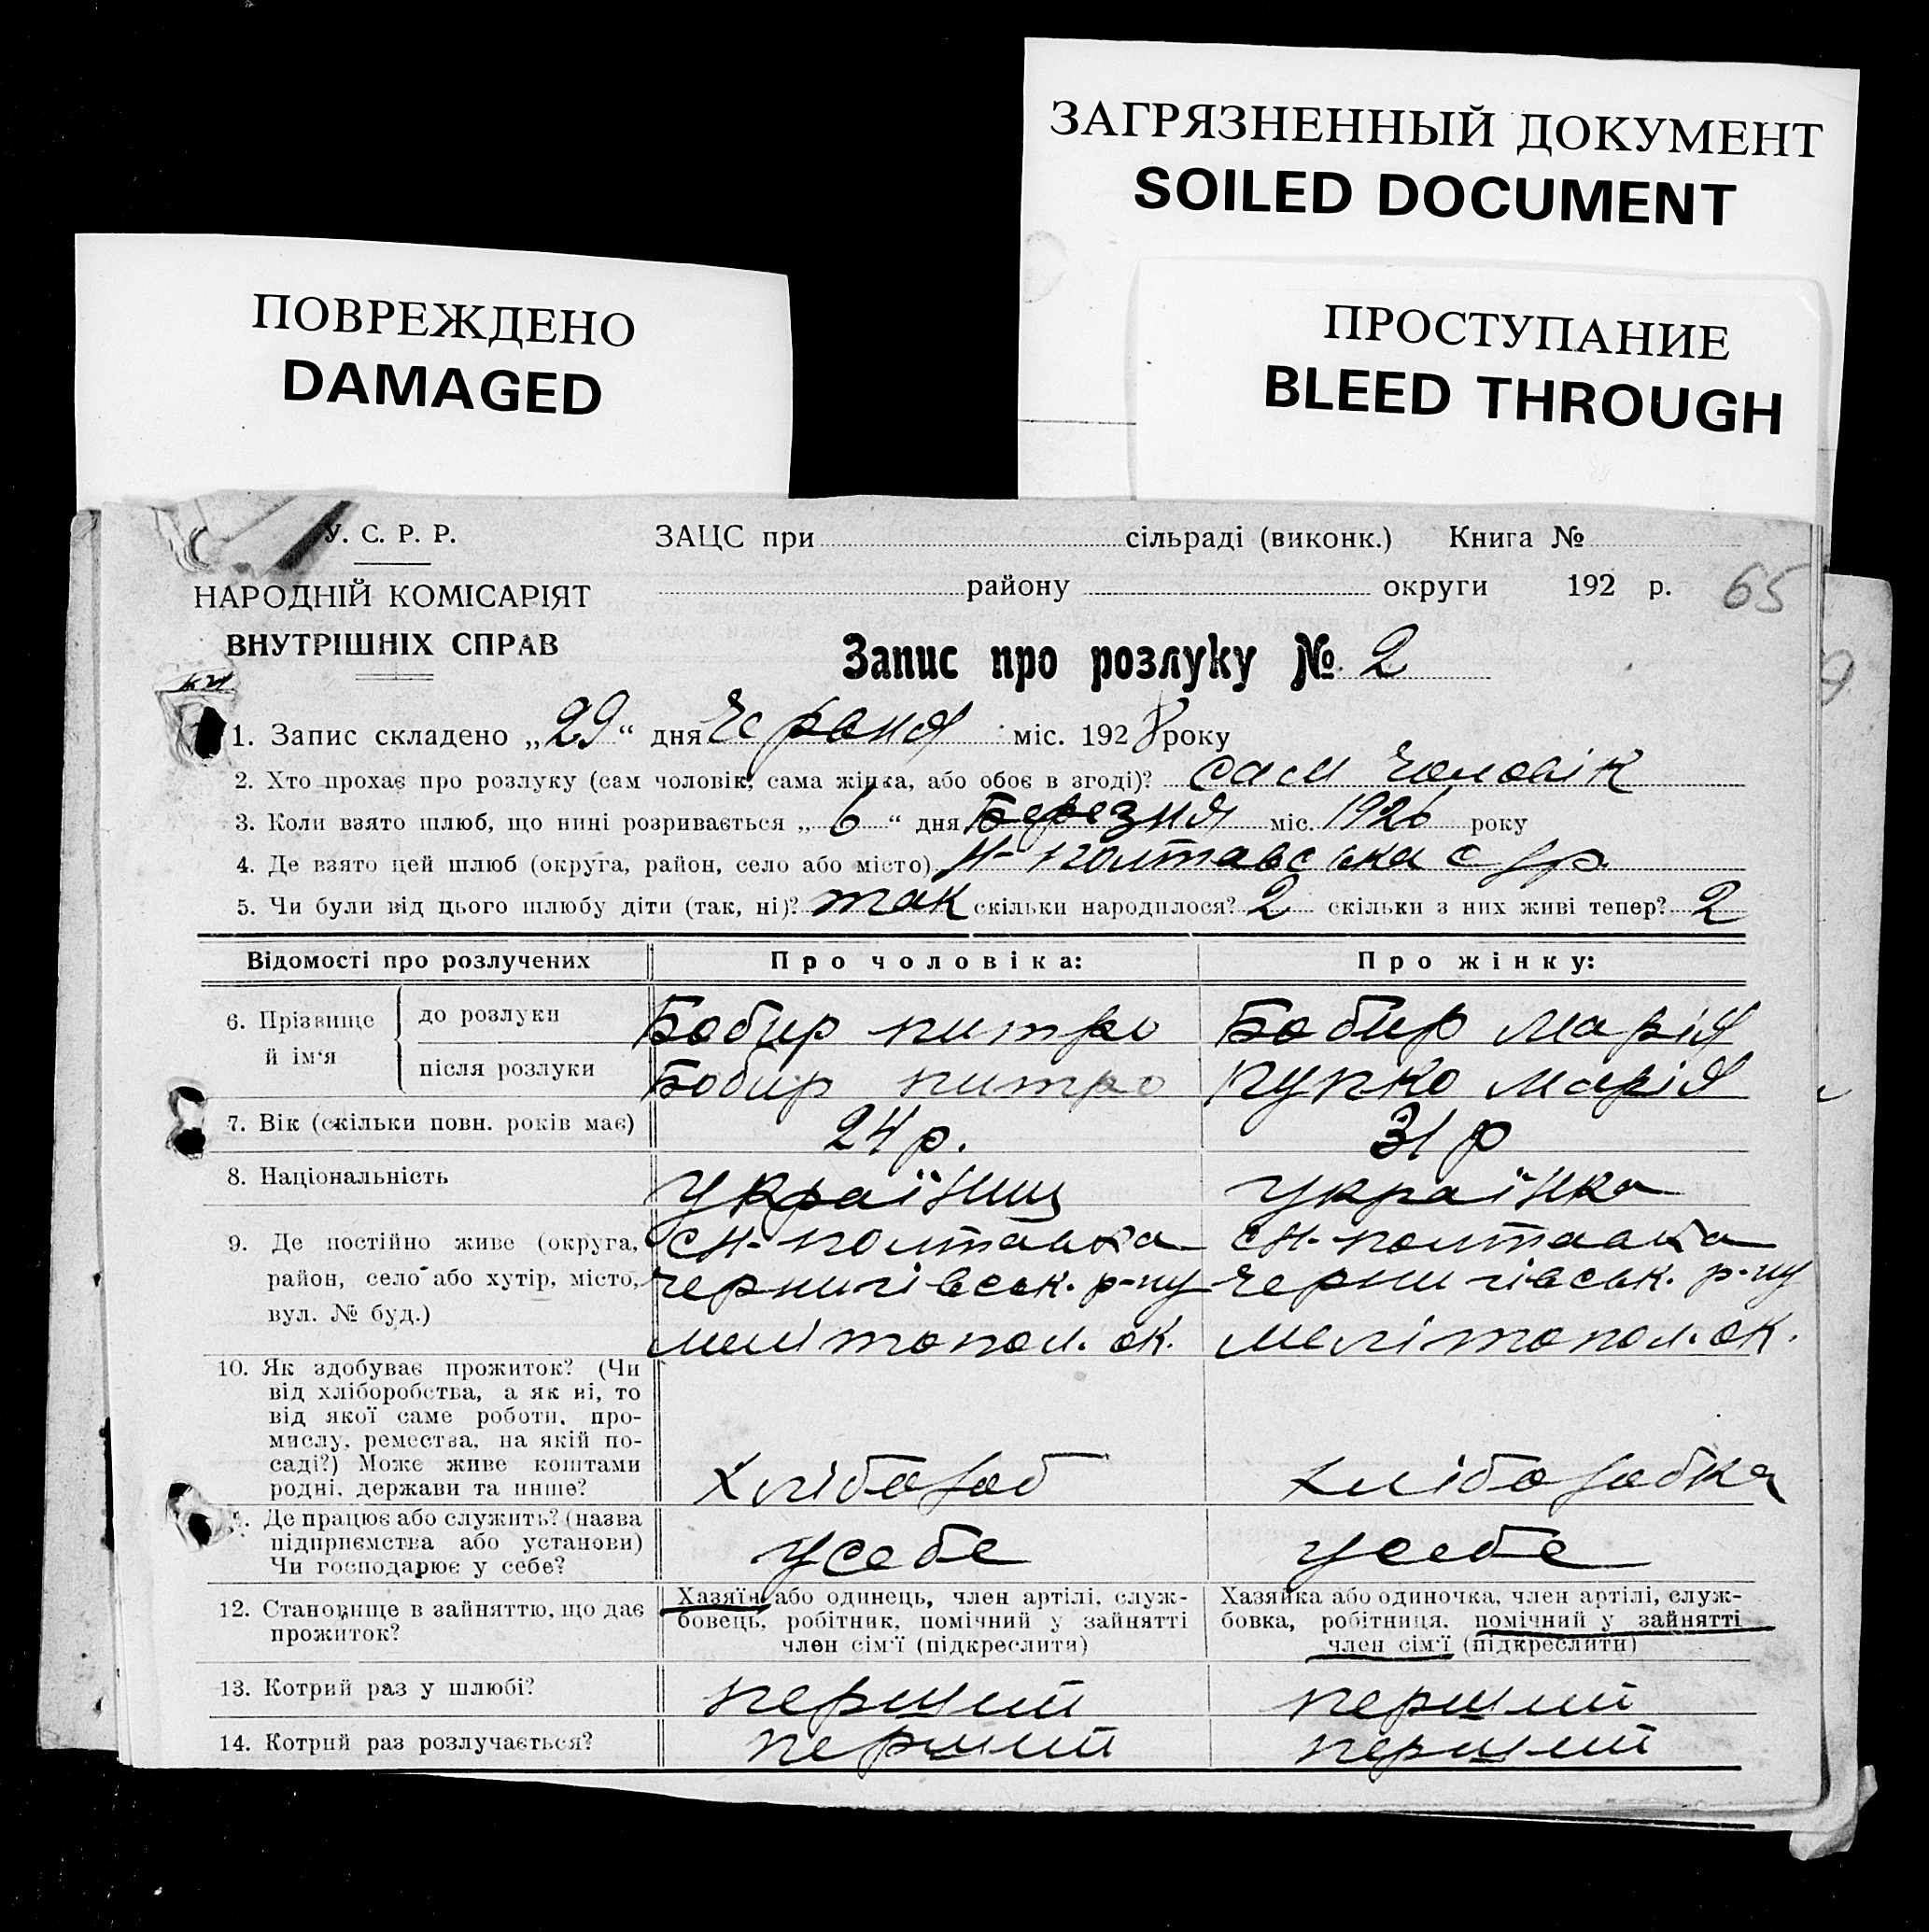 ЗАГРЯЗНЕННЫЙ ДОКУМЕНТ
SOILED DOCUMENT
ПОВРЕЖДЕНО
DAMAGED
ПРОСТУПАНИЕ
BLEED THROUGH
У. С. Р. Р.
НАРОДНІЙ КОМІСАРІЯТ
ВНУТРІШНІХ СПРАВ
ЗАЦС при сільраді (виконк.) Книга №
району округи 192 р. 65
Запис про розлуку № 2
1. Запис складено „29“ дня Червня міс. 1928 року
2. Хто прохає про розлуку (сам чоловік, сама жінка, або обоє в згоді)? сам чоловік
3. Коли взято шлюб, що нині розривається „6“ дня Березня міс. 1926 року
4. Де взято цей шлюб (округа, район, село або місто) Н-полтавська с/р.
5. Чи були від цього шлюбу діти (так, ні)? так скільки народилося? 2 скільки з них живі тепер? 2
Відомості про розлучених Про чоловіка: Про жінку:
6. Прізвище й ім'я до розлуки Бобир питро Бобир Марія
після розлуки Бобир питро пупко Марія
7. Вік (скільки повн. років має) 24 р. 31 р
8. Національність Україниць Українка
9. Де постійно живе (округа, с Н-полтавка с Н-полтавка
район, село або хутір, місто, Чернигівськ. р-ну Чернигівськ. р-ну
вул. № буд.) Мелітопол. ок. Мелітопол. ок.
10. Як здобуває прожиток? (Чи
від хліборобства, а як ні, то
від якої саме роботи, про-
мислу, ремества, на якій по-
саді?) Може живе коштами
родні, держави та инше? Хлібороб Хліборобка
Де працює або служить? (назва
підприємства або установи) усебе усебе
Чи господарює у себе?
12. Становище в зайняттю, що дає
прожиток?
Хазяїн або одинець, член артілі, служ-
бовець, робітник, помічний у зайнятті
член сім'ї (підкреслити)
Хазяйка або одиночка, член артілі, служ-
бовка, робітниця, помічний у зайнятті
член сім'ї (підкреслити)
13. Котрий раз у шлюбі? перший перший
14. Котрий раз розлучається? перший перший